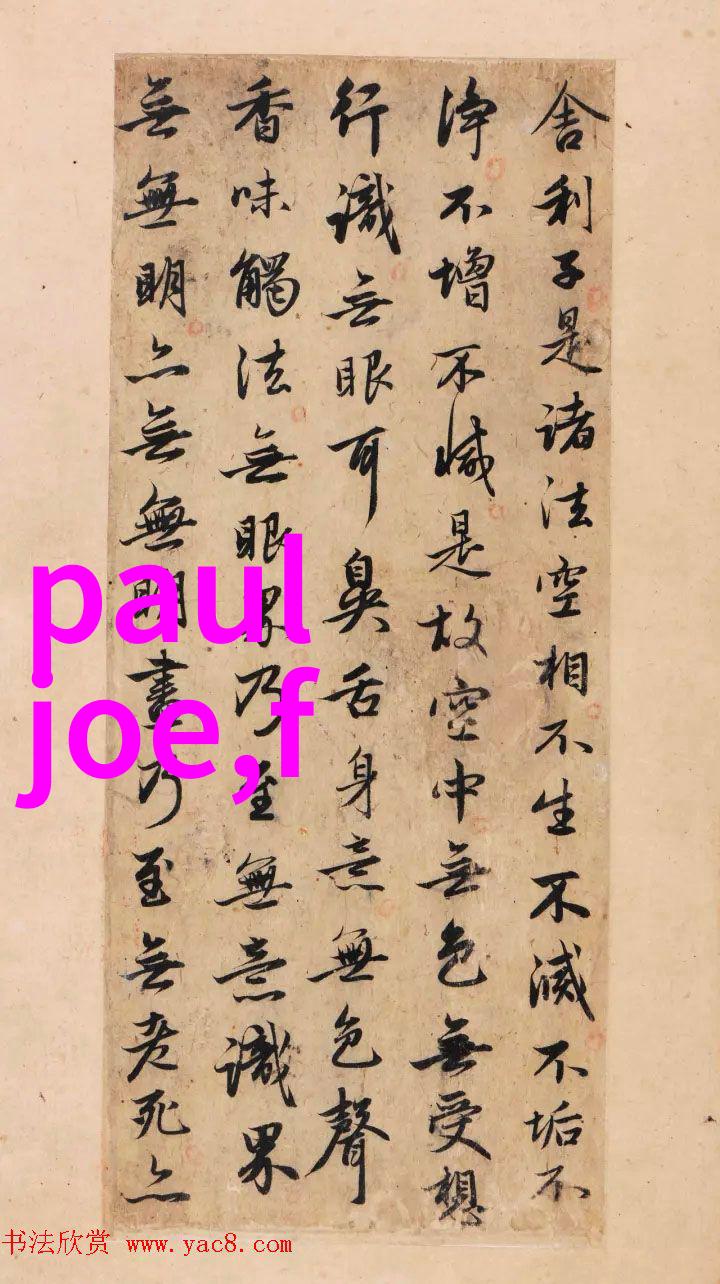 舍利子是諸法空相不生不滅不垢不
淨不增不減是故空中無色無受想
行識無眼耳鼻舌身意無色聲
香味觸法無眼界乃至無意識界
無無明亦無無明盡乃至無老死亦
paul
joe,f
书法欣赏 www.yac8.com